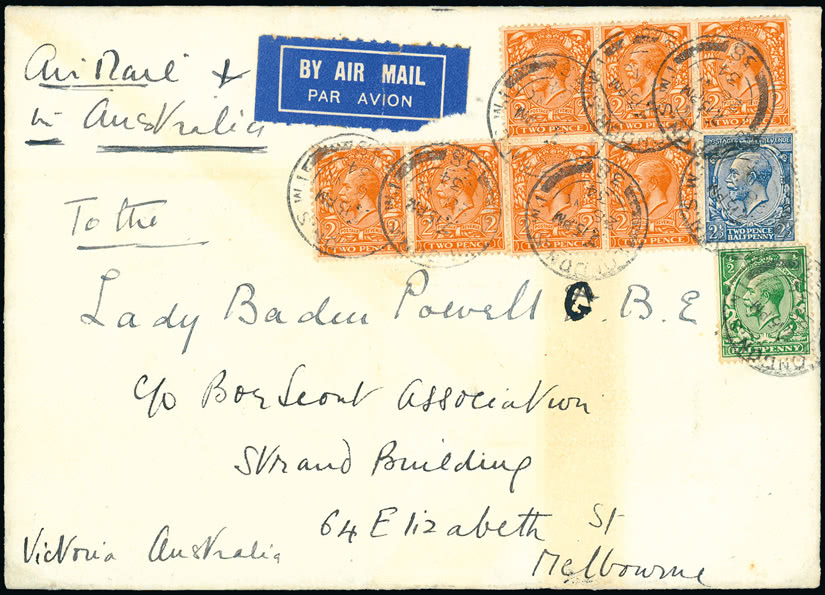 Air Mail &
in Australia
BY AIR MAIL
PAR AVION
TWO PENCE
TWO PENCE
TWO PENCE
TWO PENCE
TWO PENCE
TWO PENCE
TWO PENCE
POSTAGE REVENUE
2½ 2½
TWO PENCE
HALFPENNY
HALFPENNY
To the
Lady Baden Powell G. B. E
c/o Boy Scout Association
Strand Building
64 Elizabeth St
Melbourne
Victoria Australia